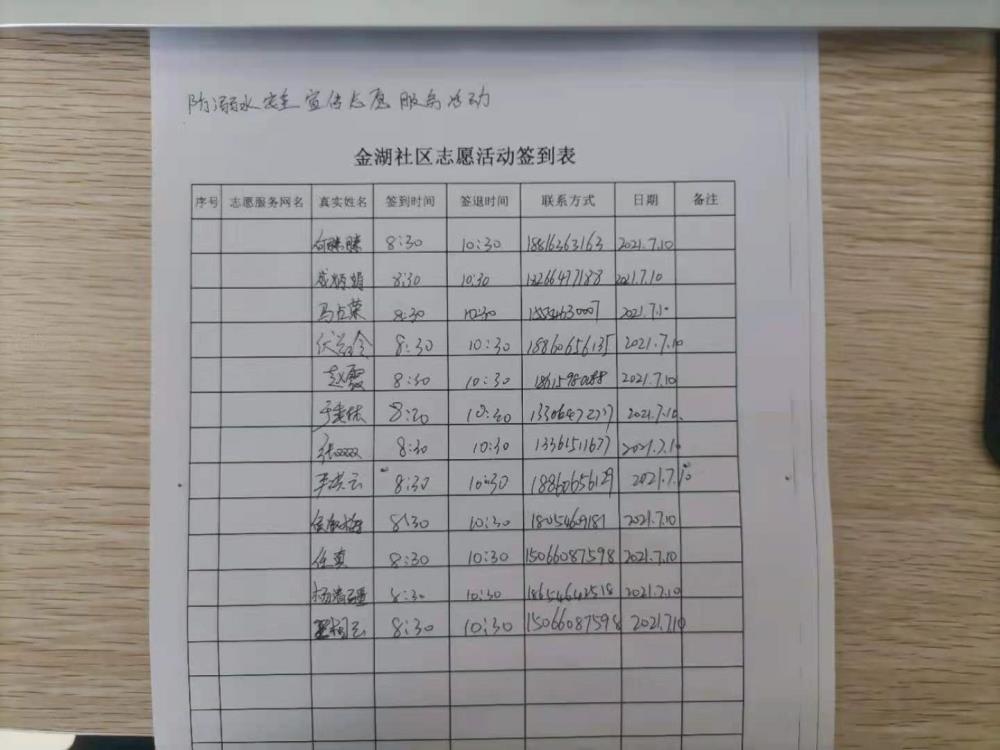 防溺水安全宣传志愿服务活动
金湖社区志愿活动签到表
序号 志愿服务网名 真实姓名 签到时间 签退时间 联系方式 日期 备注
8:30 10:30 18816263163 2021.7.10
8:30 10:30 13266477188 2021.7.10
马占荣 8:30 10:30 2021.7.10
8:30 10:30 18860656135 2021.7.10
赵霞 8:30 10:30 2021.7.10
8:30 10:30 2021.7.10
8:30 10:30 13361511677 2021.7.10
8:30 10:30 18860656129 2021.7.10
8:30 10:30 2021.7.10
任真 8:30 10:30 15066087598 2021.7.10
8:30 10:30 18654642518 2021.7.10
8:30 10:30 15066087598 2021.7.10